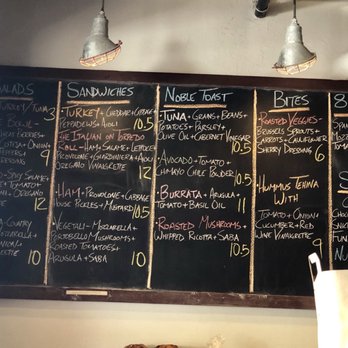 SALADS
TURKEY/TUNA 3
9
12
10
SANDWICHES
- TURKEY - CHEDDAR + CABBAGE +
PEPPADEWS + AIOLI 10.5
- THE ITALIAN ON TORPEDO
ROLL - HAM + SALAME + LETTUCE +
PROVOLONE + GIARDINIERA + AIOLI
OREGANO VINAIGRETTE 12
- HAM - PROVOLONE + CABBAGE
HOUSE PICKLES + MUSTARD 10.5
- VEGETALI - MOZZARELLA +
PORTOBELLO MUSHROOMS +
ROASTED TOMATOES +
ARUGULA + SABA 10
NOBLE TOAST
- TUNA + GRAINS + BEANS +
POTATOES + PARSLEY +
OLIVE OIL + CABERNET VINEGAR
10.5
- AVOCADO + TOMATO +
CHIMAYO CHILE POWDER
10.5
- BURRATA + ARUGULA +
TOMATO + BASIL OIL 11
- ROASTED MUSHROOMS +
WHIPPED RICOTTA + SABA
10.5
BITES
- ROASTED VEGGIES -
BRUSSELS SPROUTS +
CARROTS + CAULIFLOWER
SHERRY DRESSING 6
- HUMMUS TEHINA
WITH
TOMATO + ONION +
CUCUMBER + RED
WINE VINAIGRETTE
9